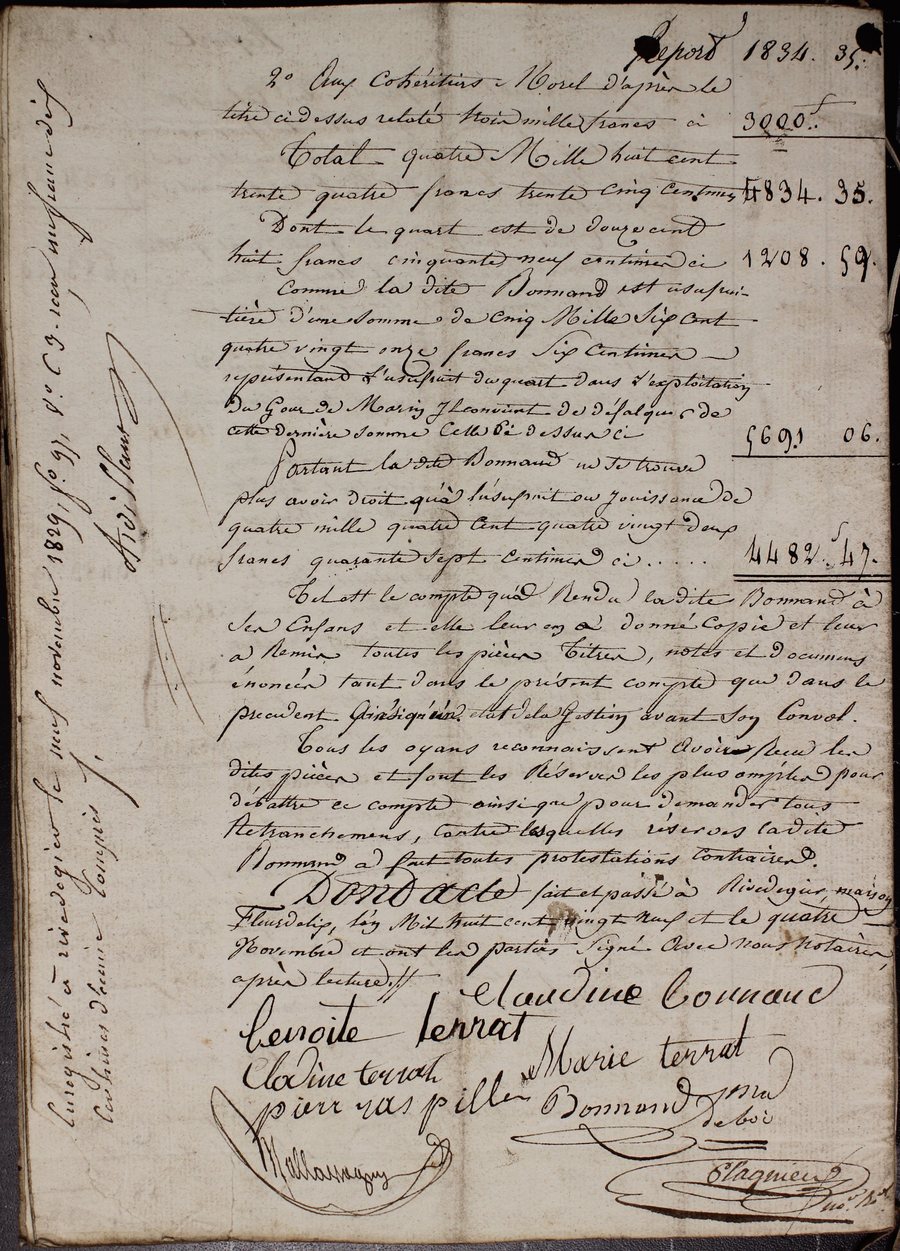 Report 1834. 35.
2° Aux cohéritiers Morel d'après le
titre ci dessus relaté trois mille francs ci 3000.f
Total quatre Mille huit cent
trente quatre francs trente cinq centimes 4834. 35.
Dont le quart est de douze cent
huit francs cinquante neuf centimes ci 1208. 59.
Comme la dite Bonnand est usufrui-
tière d'une somme de cinq Mille Six Cent
quatre vingt onze francs Six Centimes
représentand l'usufruit du quart dans l'exploitation
du Gour de Marin Il convient de défalquer de
cette dernière somme Celle ci dessus ci 5691 06.
Partant la dite Bonnand ne se trouve
plus avoir droit qu'à l'usufruit ou Jouissance de
quatre mille quatre Cent quatre vingt deux
francs quarante sept centimes ci ..... 4482.f 47.
Tel est le compte qu'a Rendu la dite Bonnand à
Ses Enfans et elle leur en a donné Copie et leur
a Remis toutes les pièces Titres, notes et documens
énoncés tant dans le présent compte que dans le
precedent état de la Gestion avant Son Convol.
Tous les oyans reconnaissent avoir Recu les
dites pièces et font les Réserves les plus amples pour
débattre ce compte ainsi que pour demander tous
Retranchemens, contre lesquelles réserves la dite
Bonnand a fait toutes protestations contraires.
Dont acte fait et passé à Rivedegier, maison
Fleurdelix, l'an Mil huit cent vingt neuf et le quatre
Novembre et ont les parties Signé Avec nous notaires,
après lecture //
Claudine Bonnand
Benoite terrat
Marie terrat
Cladine terrat
pierr jas pille
Bonnand
deboi
Enregistré à rivedegier le neuf novembre 1829, f° 97, v° C 3. recu un franc dix
Centimes décime compris